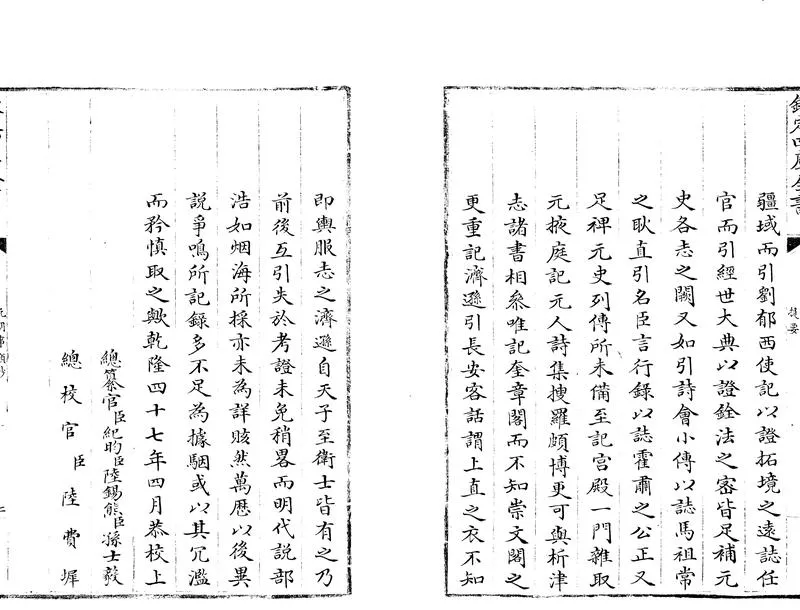 欽定四庫全書
提要
疆域而引劉郁西使記以證拓境之遠誌任
官而引經世大典以證銓法之密皆足補元
史各志之闕又如引詩會小傳以誌馬祖常
之耿直引名臣言行錄以誌霍肅之公正又
足禆元史列傳所未備至記宫殿一門雜取
元掖庭記元人詩集搜羅頗博更可與析津
志諸書相叅唯記奎章閣而不知崇文閣之
更重記濟遜引長安客話謂上直之衣不知
即輿服志之濟遜自天子至衛士皆有之乃
前後互引失於考證未免稍畧而明代説部
浩如烟海所採亦未為詳賅然萬歴以後異
説爭鳴所記録多不足為據駰或以其冗濫
而矜慎取之歟乾隆四十七年四月恭校上
總纂官臣紀昀臣陸錫熊臣孫士毅
總校官臣陸費墀